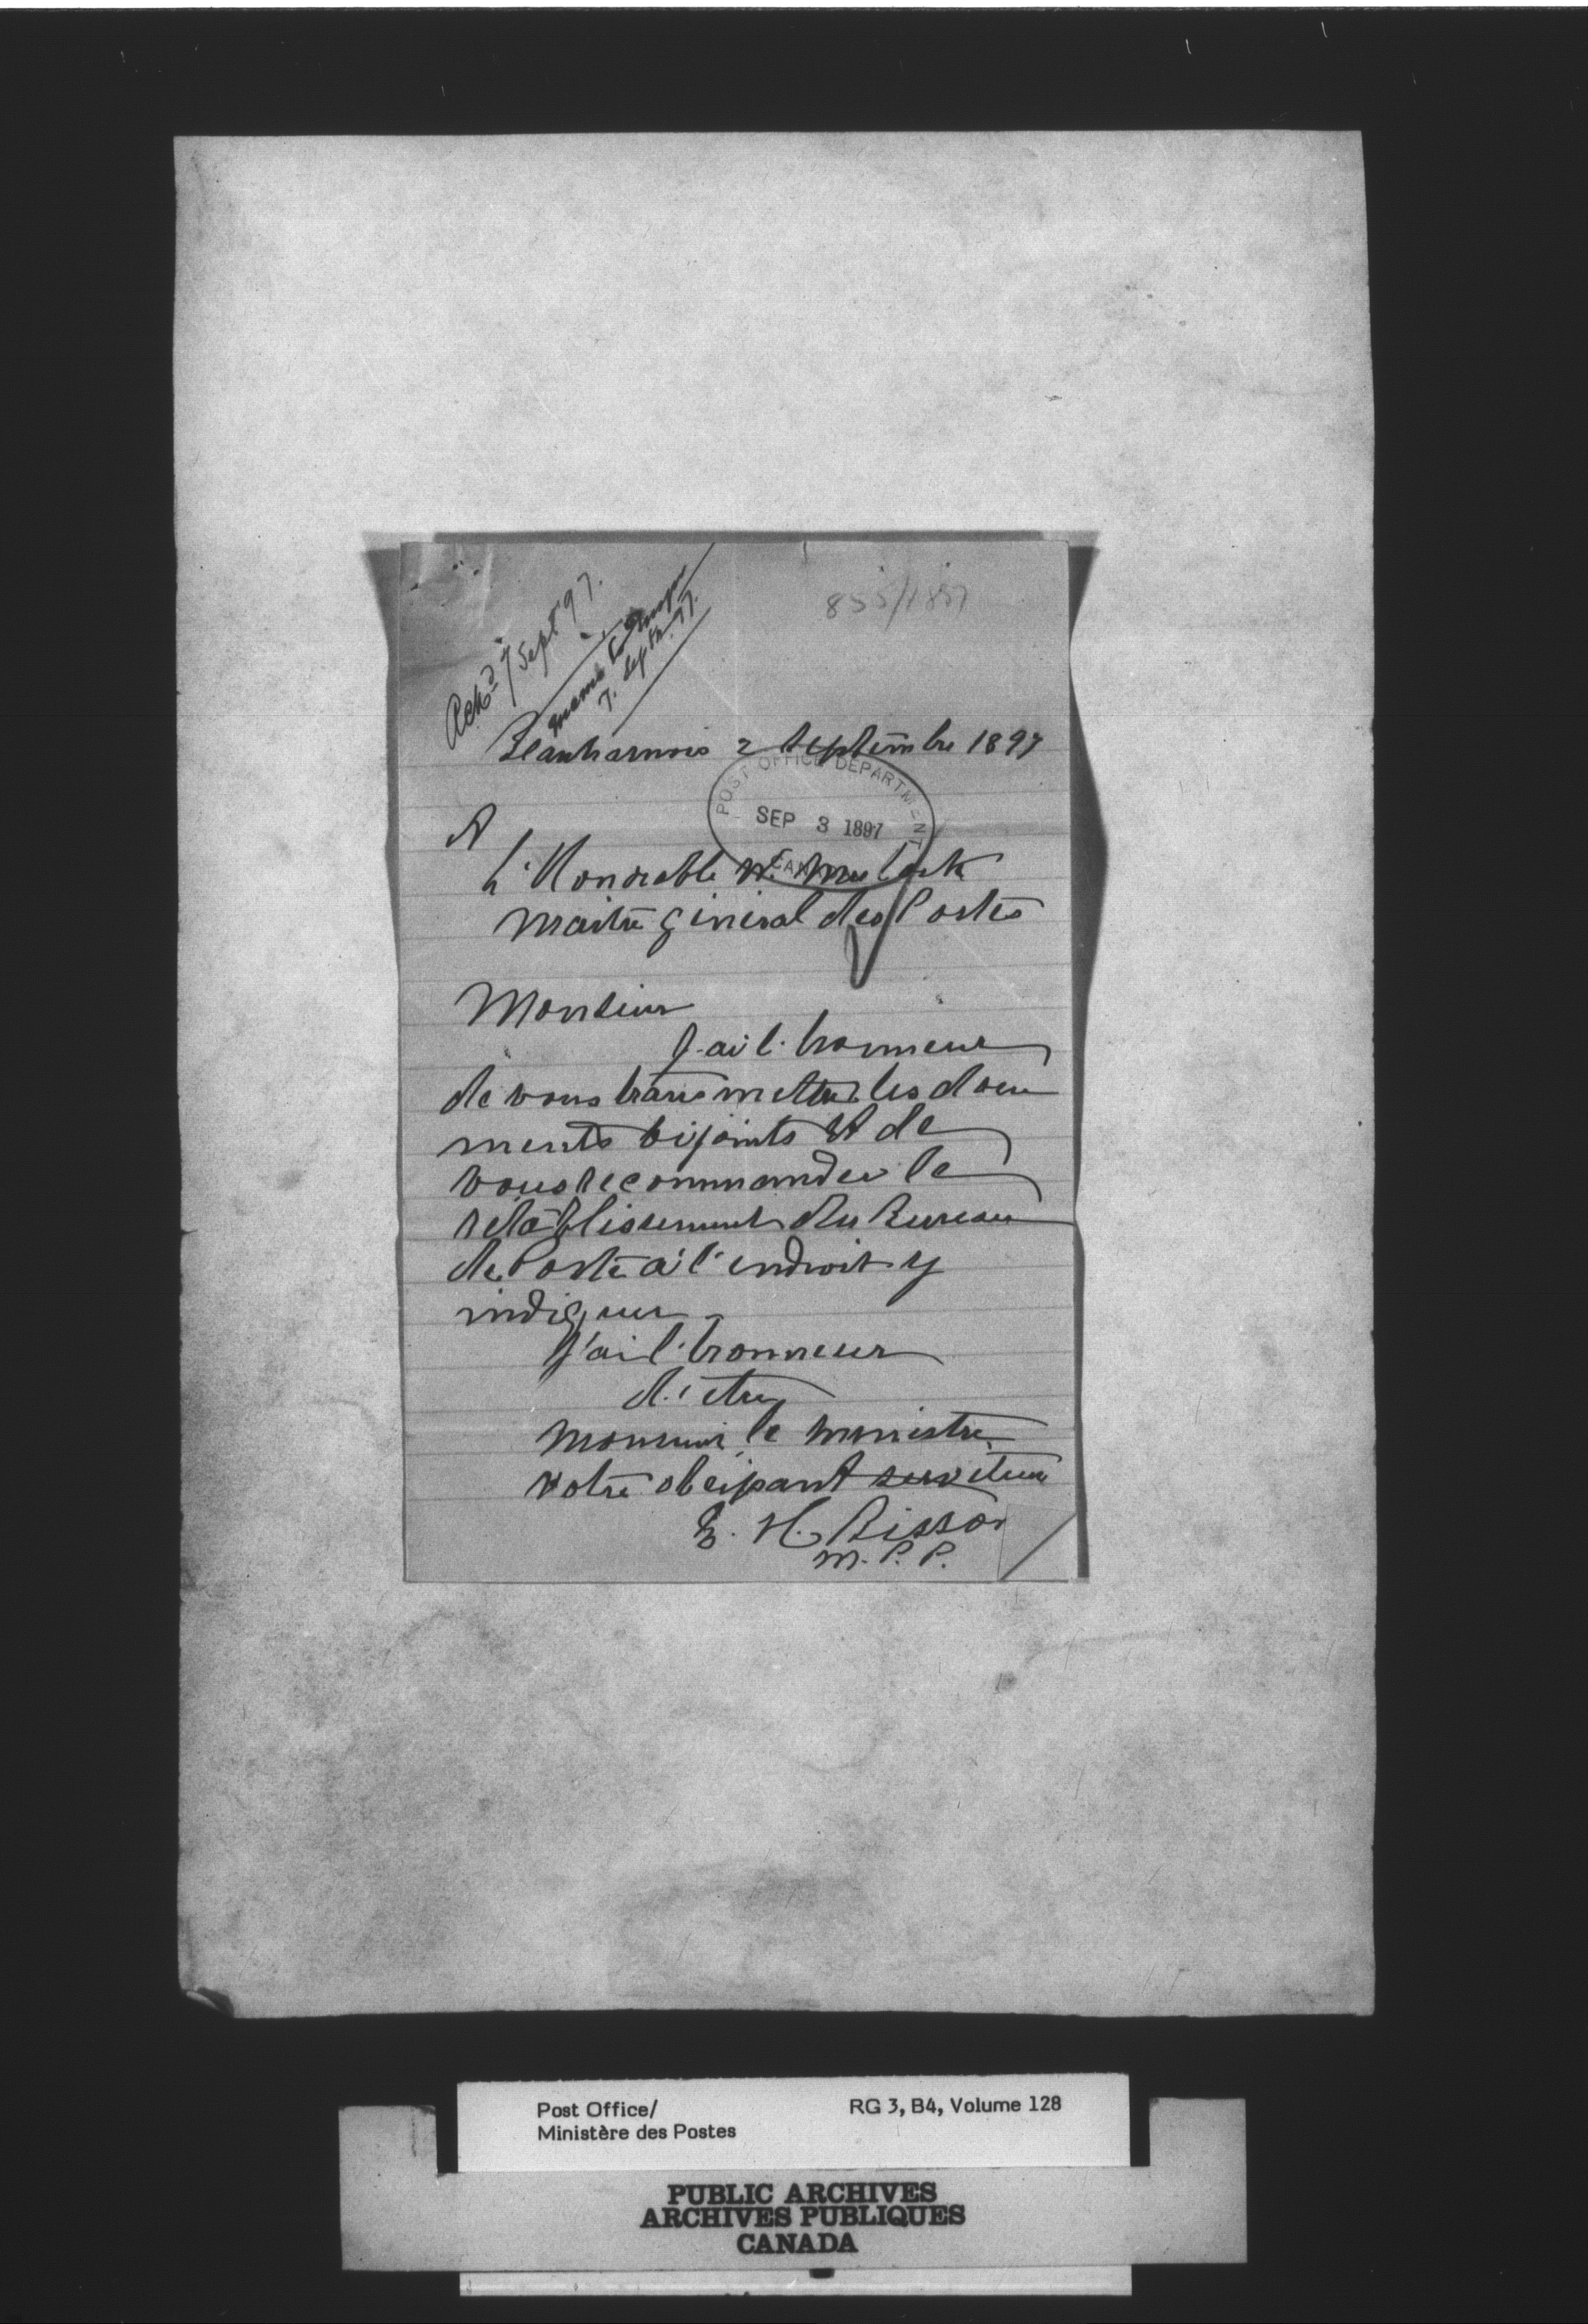 855/1897
Ackd 7 Sept 97.
memo to Inspr
7. Sept. 97.
Beauharnois 2 Septembre 1897
POST OFFICE DEPARTMENT
SEP 3 1897
CANADA
A
L'Honorable W. Mulock
Maitre Géneral des Postes
Monsieur
J'ai l'honneur
de vous transmettre les docu
ments cijoints et de
vous recommander le
rétablissement du Bureau
de Poste à l'endroit y
indiquer
J'ai l'honneur
d'etre
Monsieur le ministre
Votre obeissant serviteur
E. H. Bisson
M. P. P.
Post Office/
Ministère des Postes
RG 3, B4, Volume 128
PUBLIC ARCHIVES
ARCHIVES PUBLIQUES
CANADA